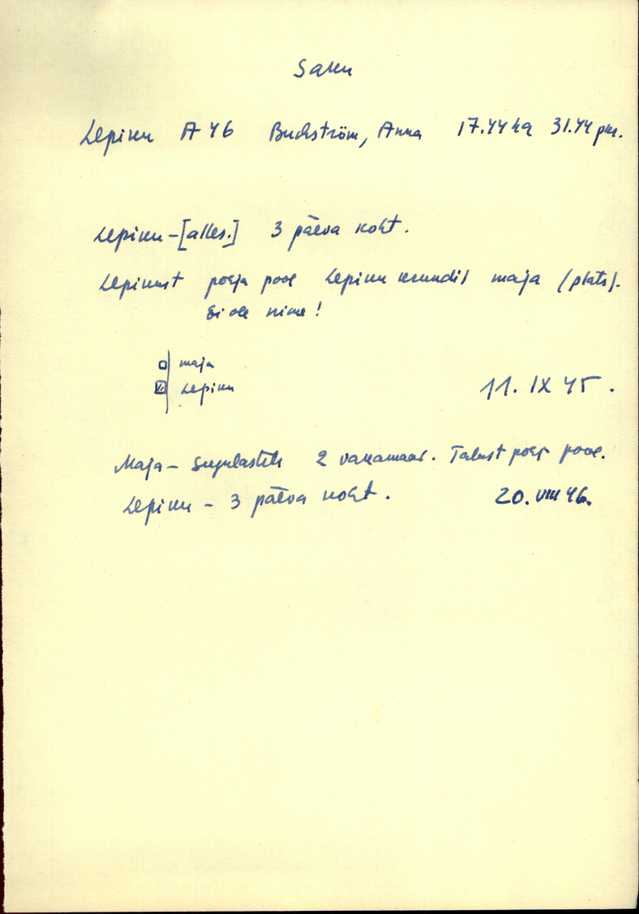 Saku
Lepiku A 46 Buchström, Anna 17.44 ha 31.44 pm.
Lepiku - [alles.] 3 päeva koht.
Lepikust põhja pool Lepiku krundil maja (plats).
Ei ole nime!
maja
Lepiku
11. IX 45.
Maja - Sugulastele 2 vakamaad. Talust põhja pool.
Lepiku - 3 päeva koht.
20. VIII 46.